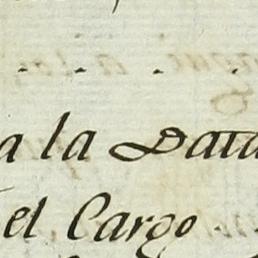 a la Data
el Cargo